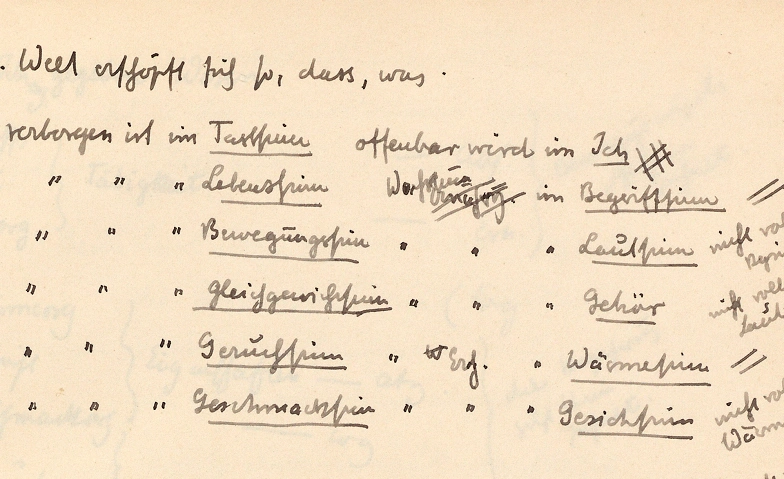 . Welt erschöpft sich so, dass, was
verborgen ist im Tastsinn offenbar wird im Ich
" " " Lebenssinn im Begriffssinn //
" " " Bewegungssinn " " " Lautsinn nicht
" " " Gleichgewichtssinn " " " Gehör nicht
" " " Geruchsinn " " Wärmesinn //
" " " Geschmacksinn " " " Gesichtsinn nicht
Wärme